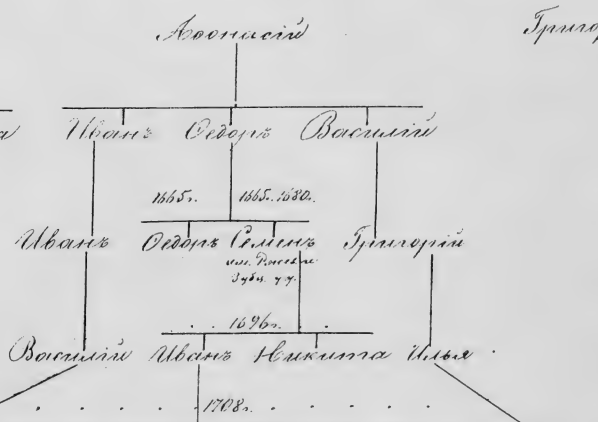 Аѳонасій
Иванъ Ѳедоръ Василій
1665г. 1665г. 1680г.
Иванъ Ѳедоръ Семенъ Григорій
1696г.
Василій Иванъ Никита Илья
1708г.